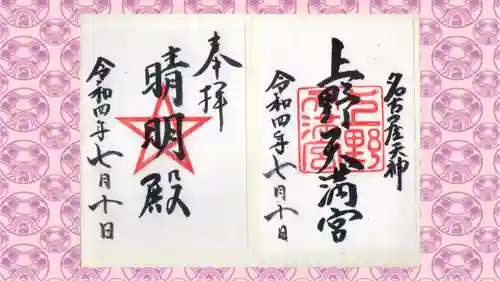 名古屋天神
上野天満宮
令和四年七月十日
上野天満宮
奉拝
晴明殿
令和四年七月十日